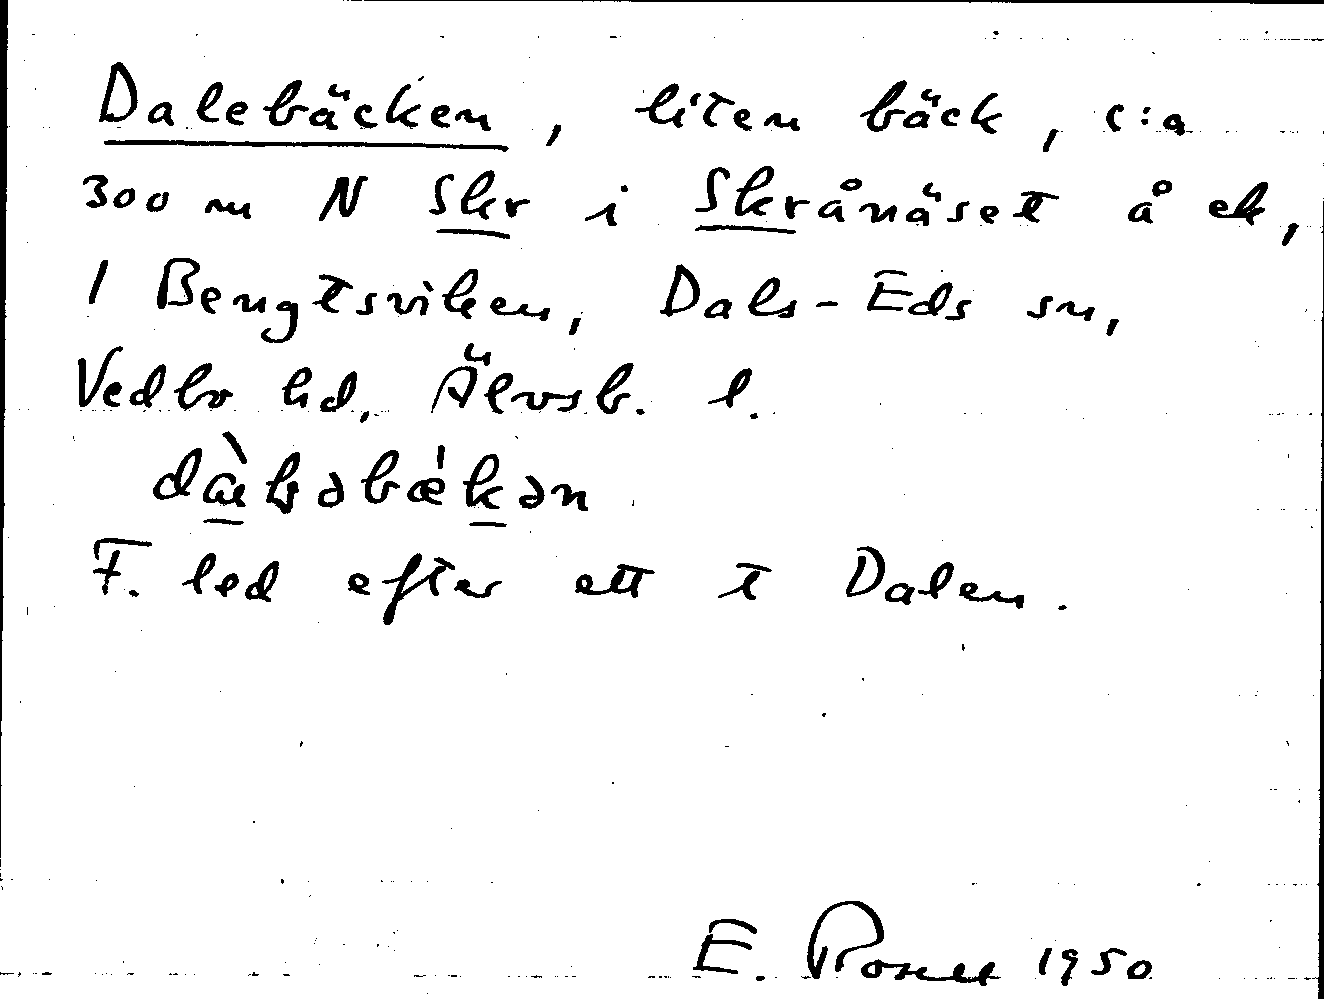 Dalebäcken, liten bäck, c:a
300 m N Skr i Skrånäset å ek,
1 Bengtsviken, Dals-Eds sn,
Vedbo hd, Älvsb. l.
F. led efter ett t Dalen.
E. 1950